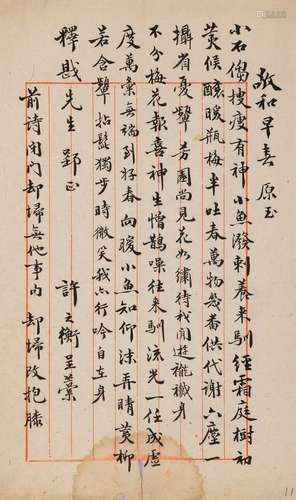 敬和早春 原玉
小石搜瘦有神小魚潑剌養來馴經霜庭樹初
黃暖瓶梅半吐春萬物幾番供代謝六塵一
攝省憂顰芳園尚見花如繡待我閒遊身
不分梅花報喜神生憎鵲噪往來馴流光一任成虛
度萬彙無端到好春向暖小魚知仰沫弄晴黃柳
若含顰拈髭獨步時微笑我亦行吟自在身
釋戡先生 郢正 許之衡呈藁
前詩閉門却掃無他事内 却掃改抱膝
11